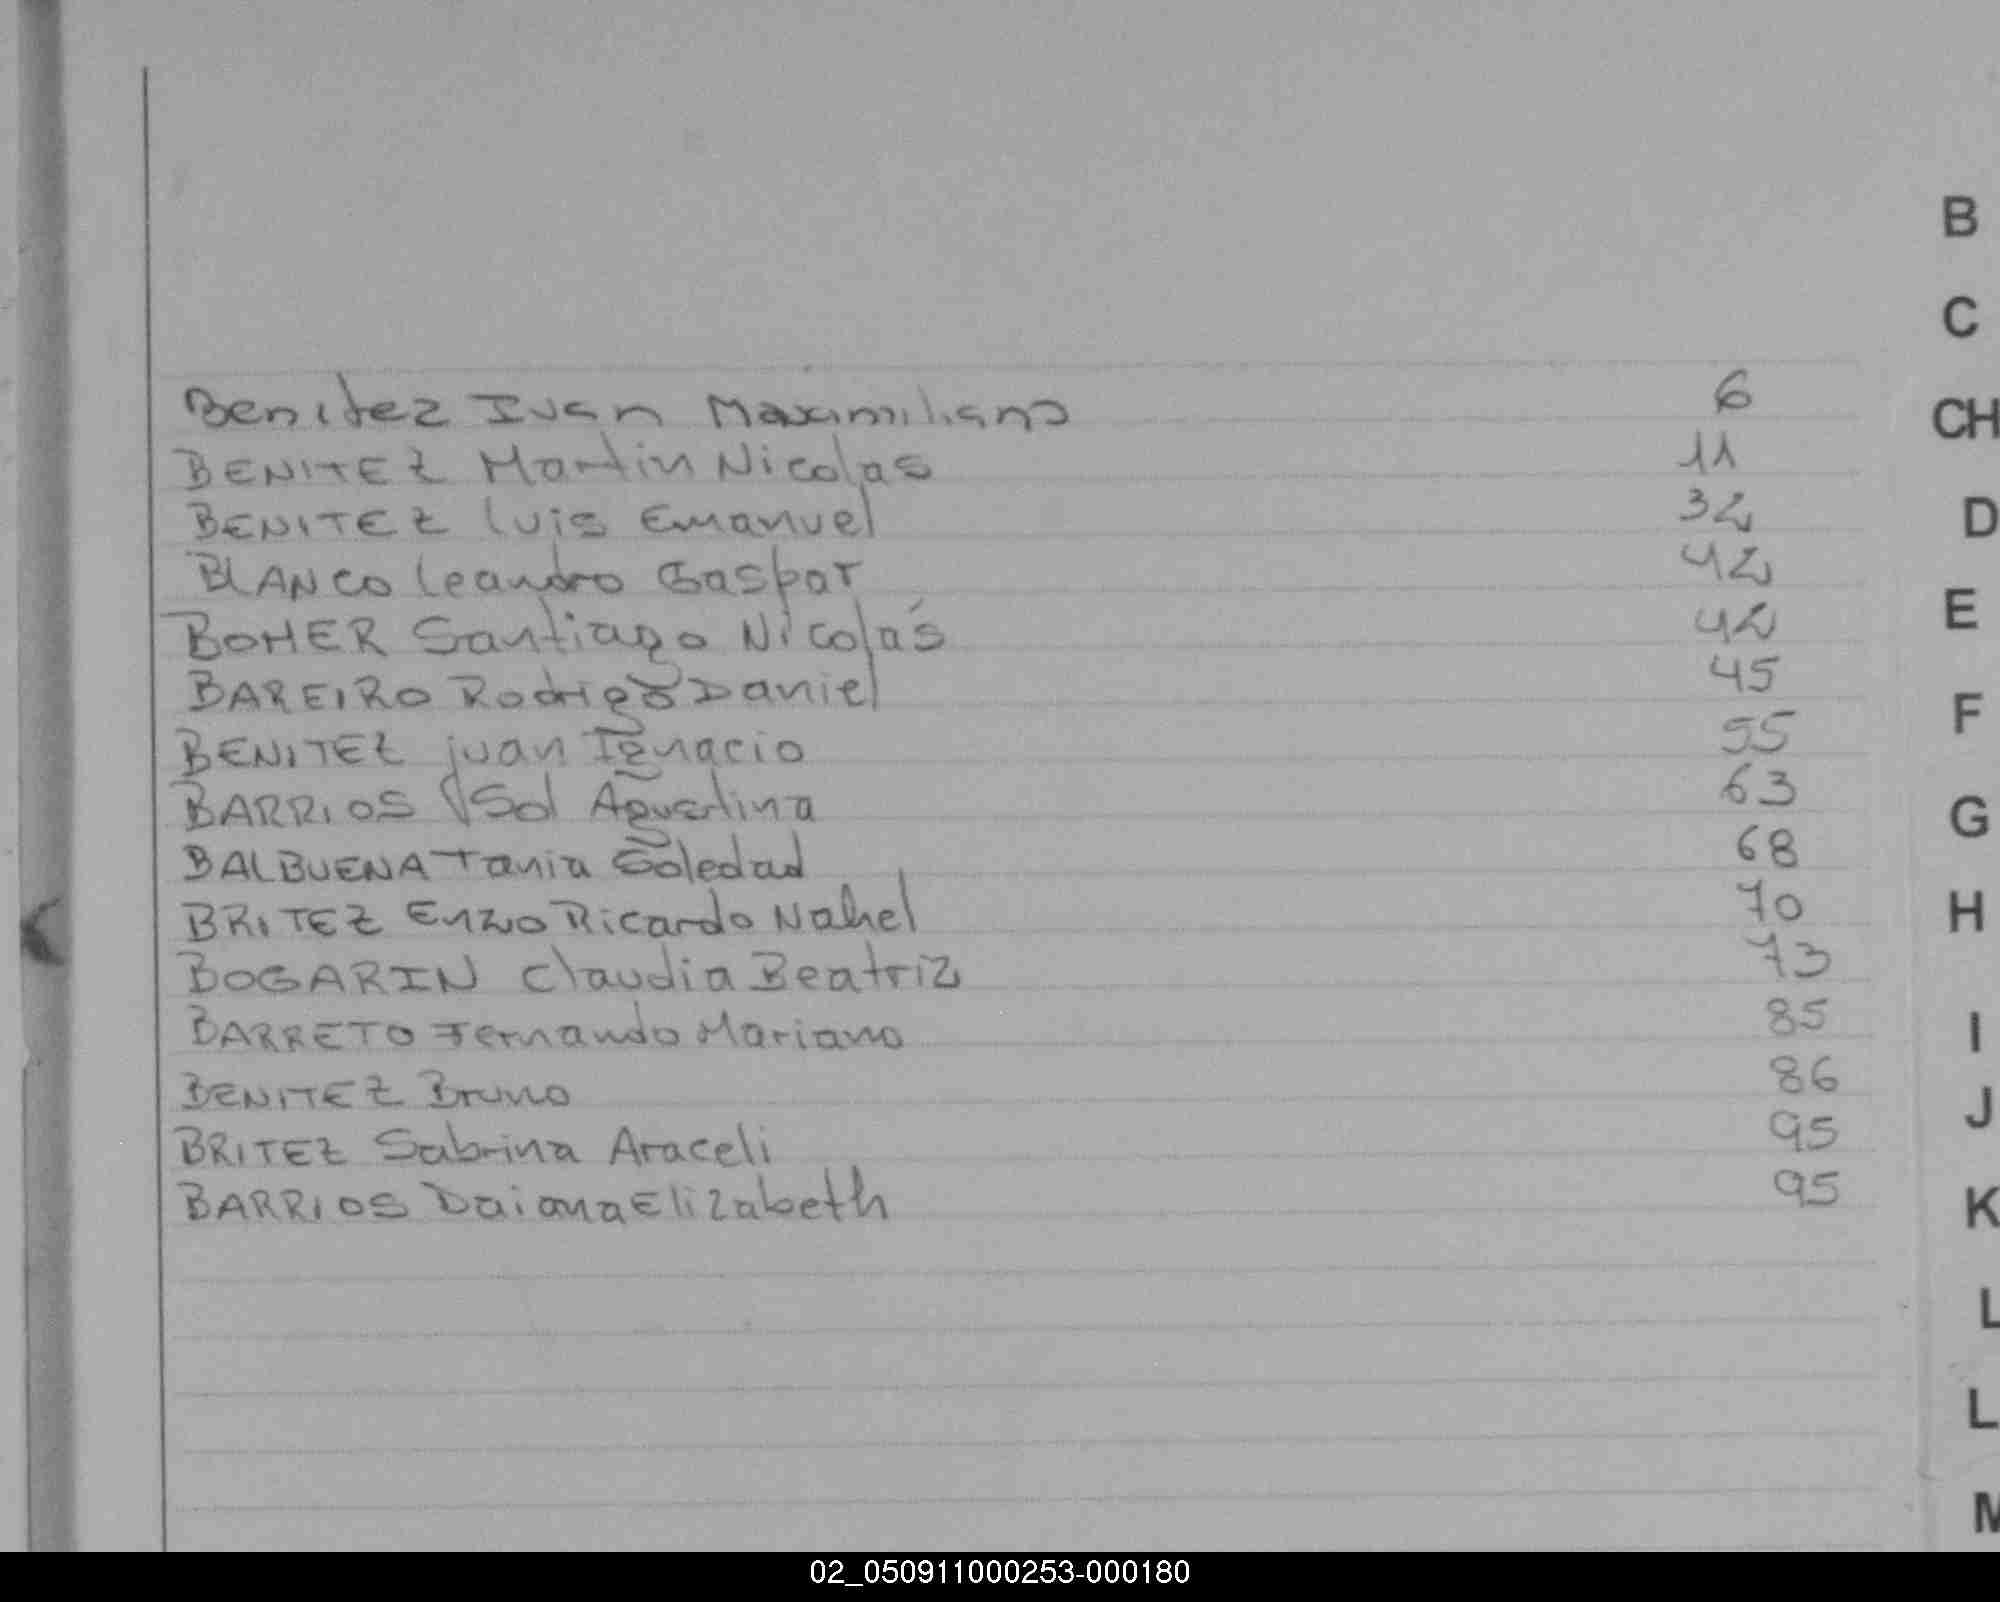 Benitez Ivan Maximiliano 6
BENITEZ Martin Nicolas 11
BENITEZ Luis Emanuel 32
BLANCO Leandro Gaspar 42
BOHER Santiago Nicolás 42
BAREIRO Rodrigo Daniel 45
BENITEZ Juan Ignacio 55
BARRIOS Sol Agustina 63
BALBUENA Tania Soledad 68
BRITEZ Enzo Ricardo Nahel 70
BOGARIN Claudia Beatriz 73
BARRETO Fernando Mariano 85
BENITEZ Bruno 86
BRITEZ Sabrina Araceli 95
BARRIOS Daiana Elizabeth 95
B
C
CH
D
E
F
G
H
I
J
K
L
L
M
02_050911000253-000180